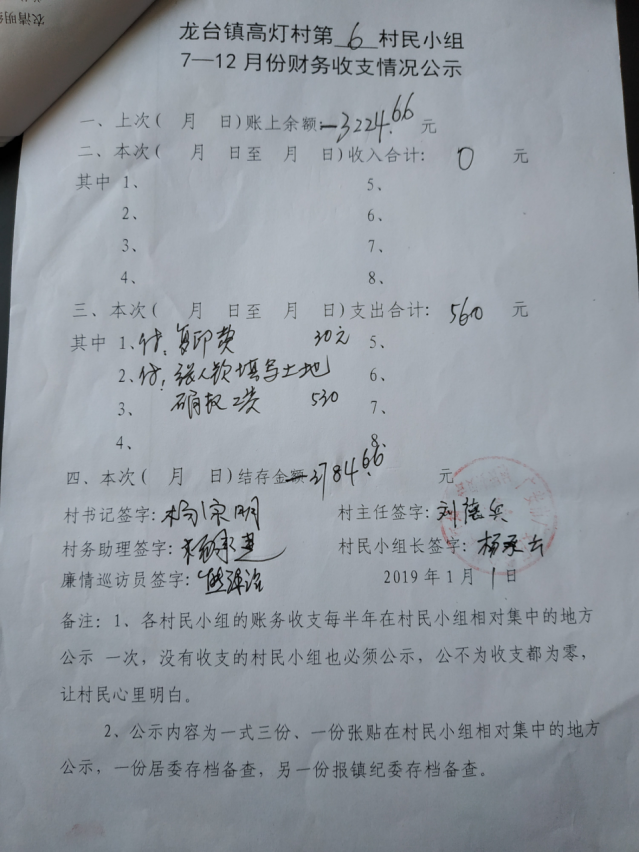 农清明
龙台镇高灯村第6村民小组
7—12月份财务收支情况公示
一、上次( 月 日)账上余额:-3224.66元
二、本次( 月 日至 月 日)收入合计: 0 元
其中 1、 5、
2、 6、
3、 7、
4、 8、
三、本次( 月 日至 月 日)支出合计: 560 元
其中 1、付:复印费 30元 5、
2、付:张人钦填写土地 6、
3、确权工资 530 7、
4、 8、
四、本次( 月 日)结存金额-3784.66 元
村书记签字:杨 明 村主任签字:刘德兵
村务助理签字: 村民小组长签字:杨
廉情巡访员签字: 2019年1月1日
备注:1、各村民小组的账务收支每半年在村民小组相对集中的地方
公示 一次，没有收支的村民小组也必须公示，公不为收支都为零，
让村民心里明白。
2、公示内容为一式三份、一份张贴在村民小组相对集中的地方
公示，一份居委存档备查，另一份报镇纪委存档备查。